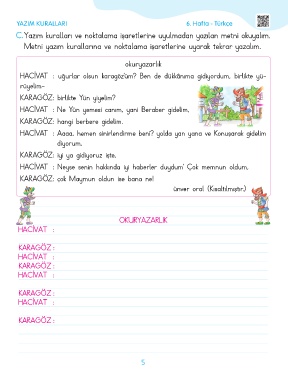 YAZIM KURALLARI
6. Hafta - Türkçe
C. Yazım kuralları ve noktalama işaretlerine uyulmadan yazılan metni okuyalım.
Metni yazım kurallarına ve noktalama işaretlerine uyarak tekrar yazalım.
okuryazarlık
HACİVAT : uğurlar olsun karagözüm? Ben de dükkânıma gidiyordum, birlikte yü-
rüyelim-
KARAGÖZ: birlikte Yün yiyelim?
HACİVAT : Ne Yün yemesi canım, yani Beraber gidelim,
KARAGÖZ: hangi berbere gidelim.
HACİVAT : Aaaa, hemen sinirlendirme beni? yolda yan yana ve Konuşarak gidelim
diyorum,
KARAGÖZ: iyi ya gidiyoruz işte,
HACİVAT : Neyse senin hakkında iyi haberler duydum' Çok memnun oldum,
KARAGÖZ: çok Maymun oldun ise bana ne!
ünver oral (Kısaltılmıştır.)
OKURYAZARLIK
HACİVAT :
KARAGÖZ :
HACİVAT :
KARAGÖZ :
HACİVAT :
KARAGÖZ :
HACİVAT :
KARAGÖZ :
5